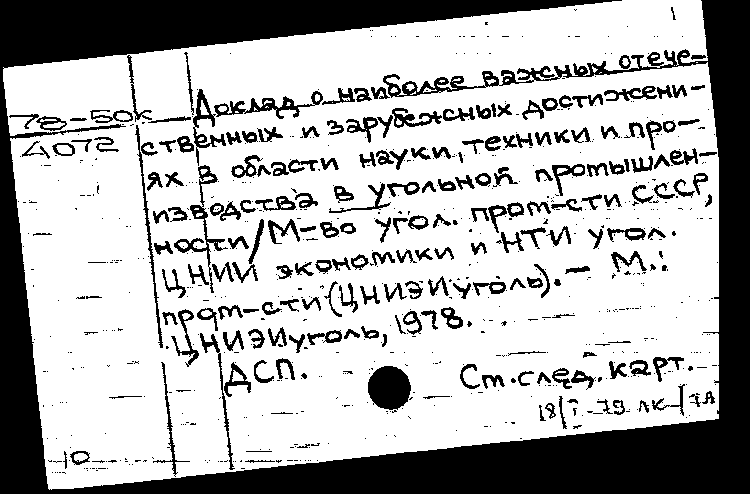 1
Доклад о наиболее важных отече-
78-50к
4072
ственных и зарубежных достижени-
ях в области науки, техники и про-
изводства в угольной промышлен-
ности/М-во угол. пром-сти СССР,
ЦНИИ экономики и НТИ угол.
пром-сти (ЦНИЭИуголь). - М.:
ЦНИЭИуголь, 1978.
ДСП.
См. след. карт.
18/I-79
10